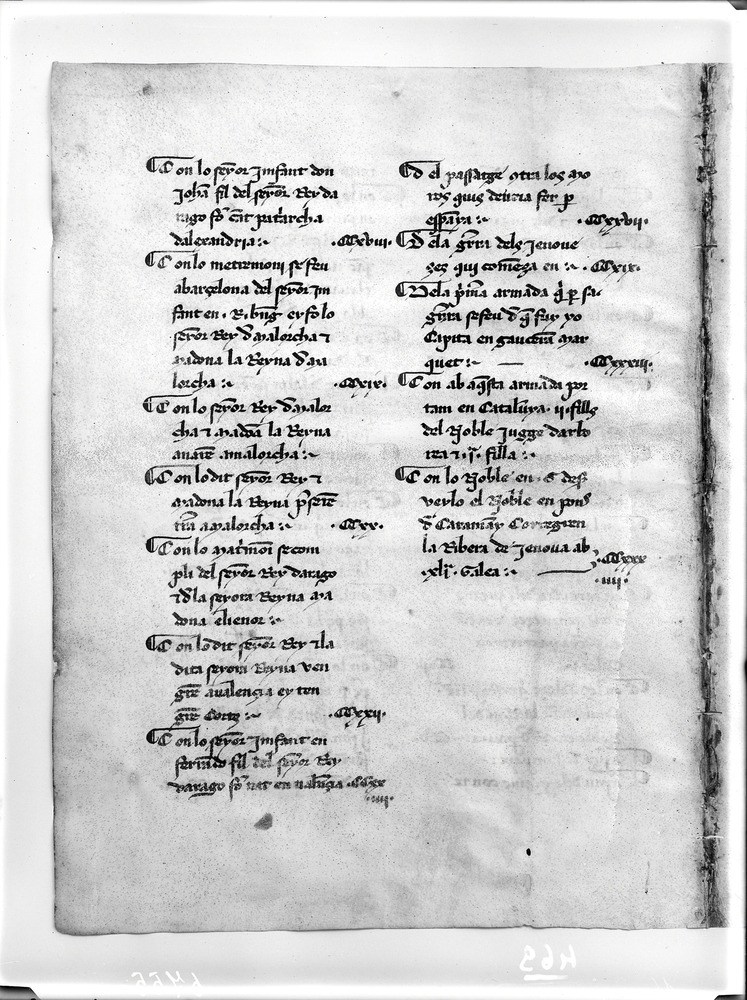 Con lo seyor Infant don
Johã fil del seyor Rey da
rago fo c̃nt patrarcha
dalexandria :~ · CCxviii ·
Con lo metremoni se feu
a barçelona del seyor In
fant en · R · bñg ey fo lo
seyor Rey d̃ malorcha ⁊
madona la Reyna d̃ ma
lorcha :~ · CCxix ·
Con lo seyor Rey d̃ malor
cha ⁊ madõa la Reyna
anarẽ a malorcha :~
Con lo dit seyor Rey ⁊
madona la Reyna p̃serẽ
tr̃ra a malorcha :~ · CCxx ·
Con lo matr̃moni se com
pli del seyor Rey darago
⁊ d̃ la seyora Reyna ma
dona elienor :~
Con lo dit seyor Rey ⁊ la
dita seyora Reyna ven
gr̃e a valençia ey ten
gr̃e Cortz :~ · CCxxii ·
Con lo seyor Infant en
ferrãdo fil del seyor Rey
darago fo nat en valẽçia · CCxx
· iiii ·
D el passatge otra los mo
ros quis deuria fer p̱
espãya :~ · CCxxvii ·
De la gr̃ra dels Jenoue
ses qui comẽça en :~ · CCxix ·
De la p̃ma armada q̃ p̱ sa
gr̃ra se feu d̃ q̃ fuy yo
Capita en gaucerã mar
quet :~ — · CCxxxiii ·
Con ab aq̃sta armada por
tam en Cataluya · ii · fills
del Noble Jugge darbo
rea ⁊ · i · filla :~
Con lo Noble en · G · des
veylo el Noble en ponç
d̃ Santapau Corregren
la Ribera de Jenoua ab
· xlii · Galea :~ — · CCxxx
· iiii ·
469